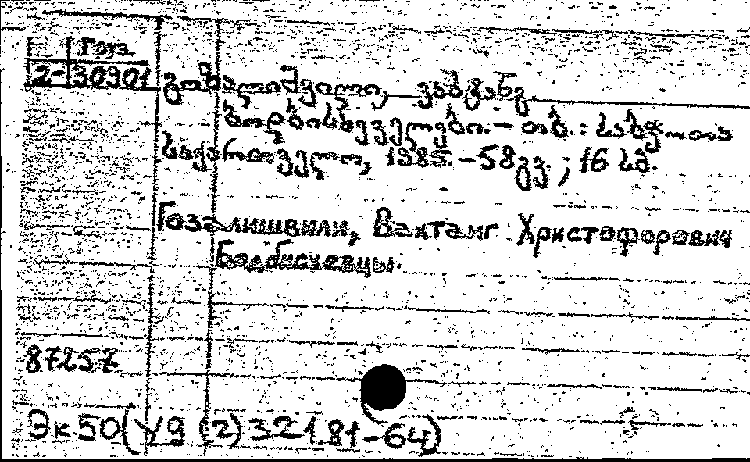 Груз.
2-30901
გოზალიშვილი, ვახტანგ.
ბოდბისხეველები. - თბ. : საბჭოთა
საქართველო, 1985. - 58 გვ. ; 16 სმ.
Гозалишвили, Вахтанг Христофорович
Бодбисхевцы.
87257
Эк50(У9(2)321.81-64)